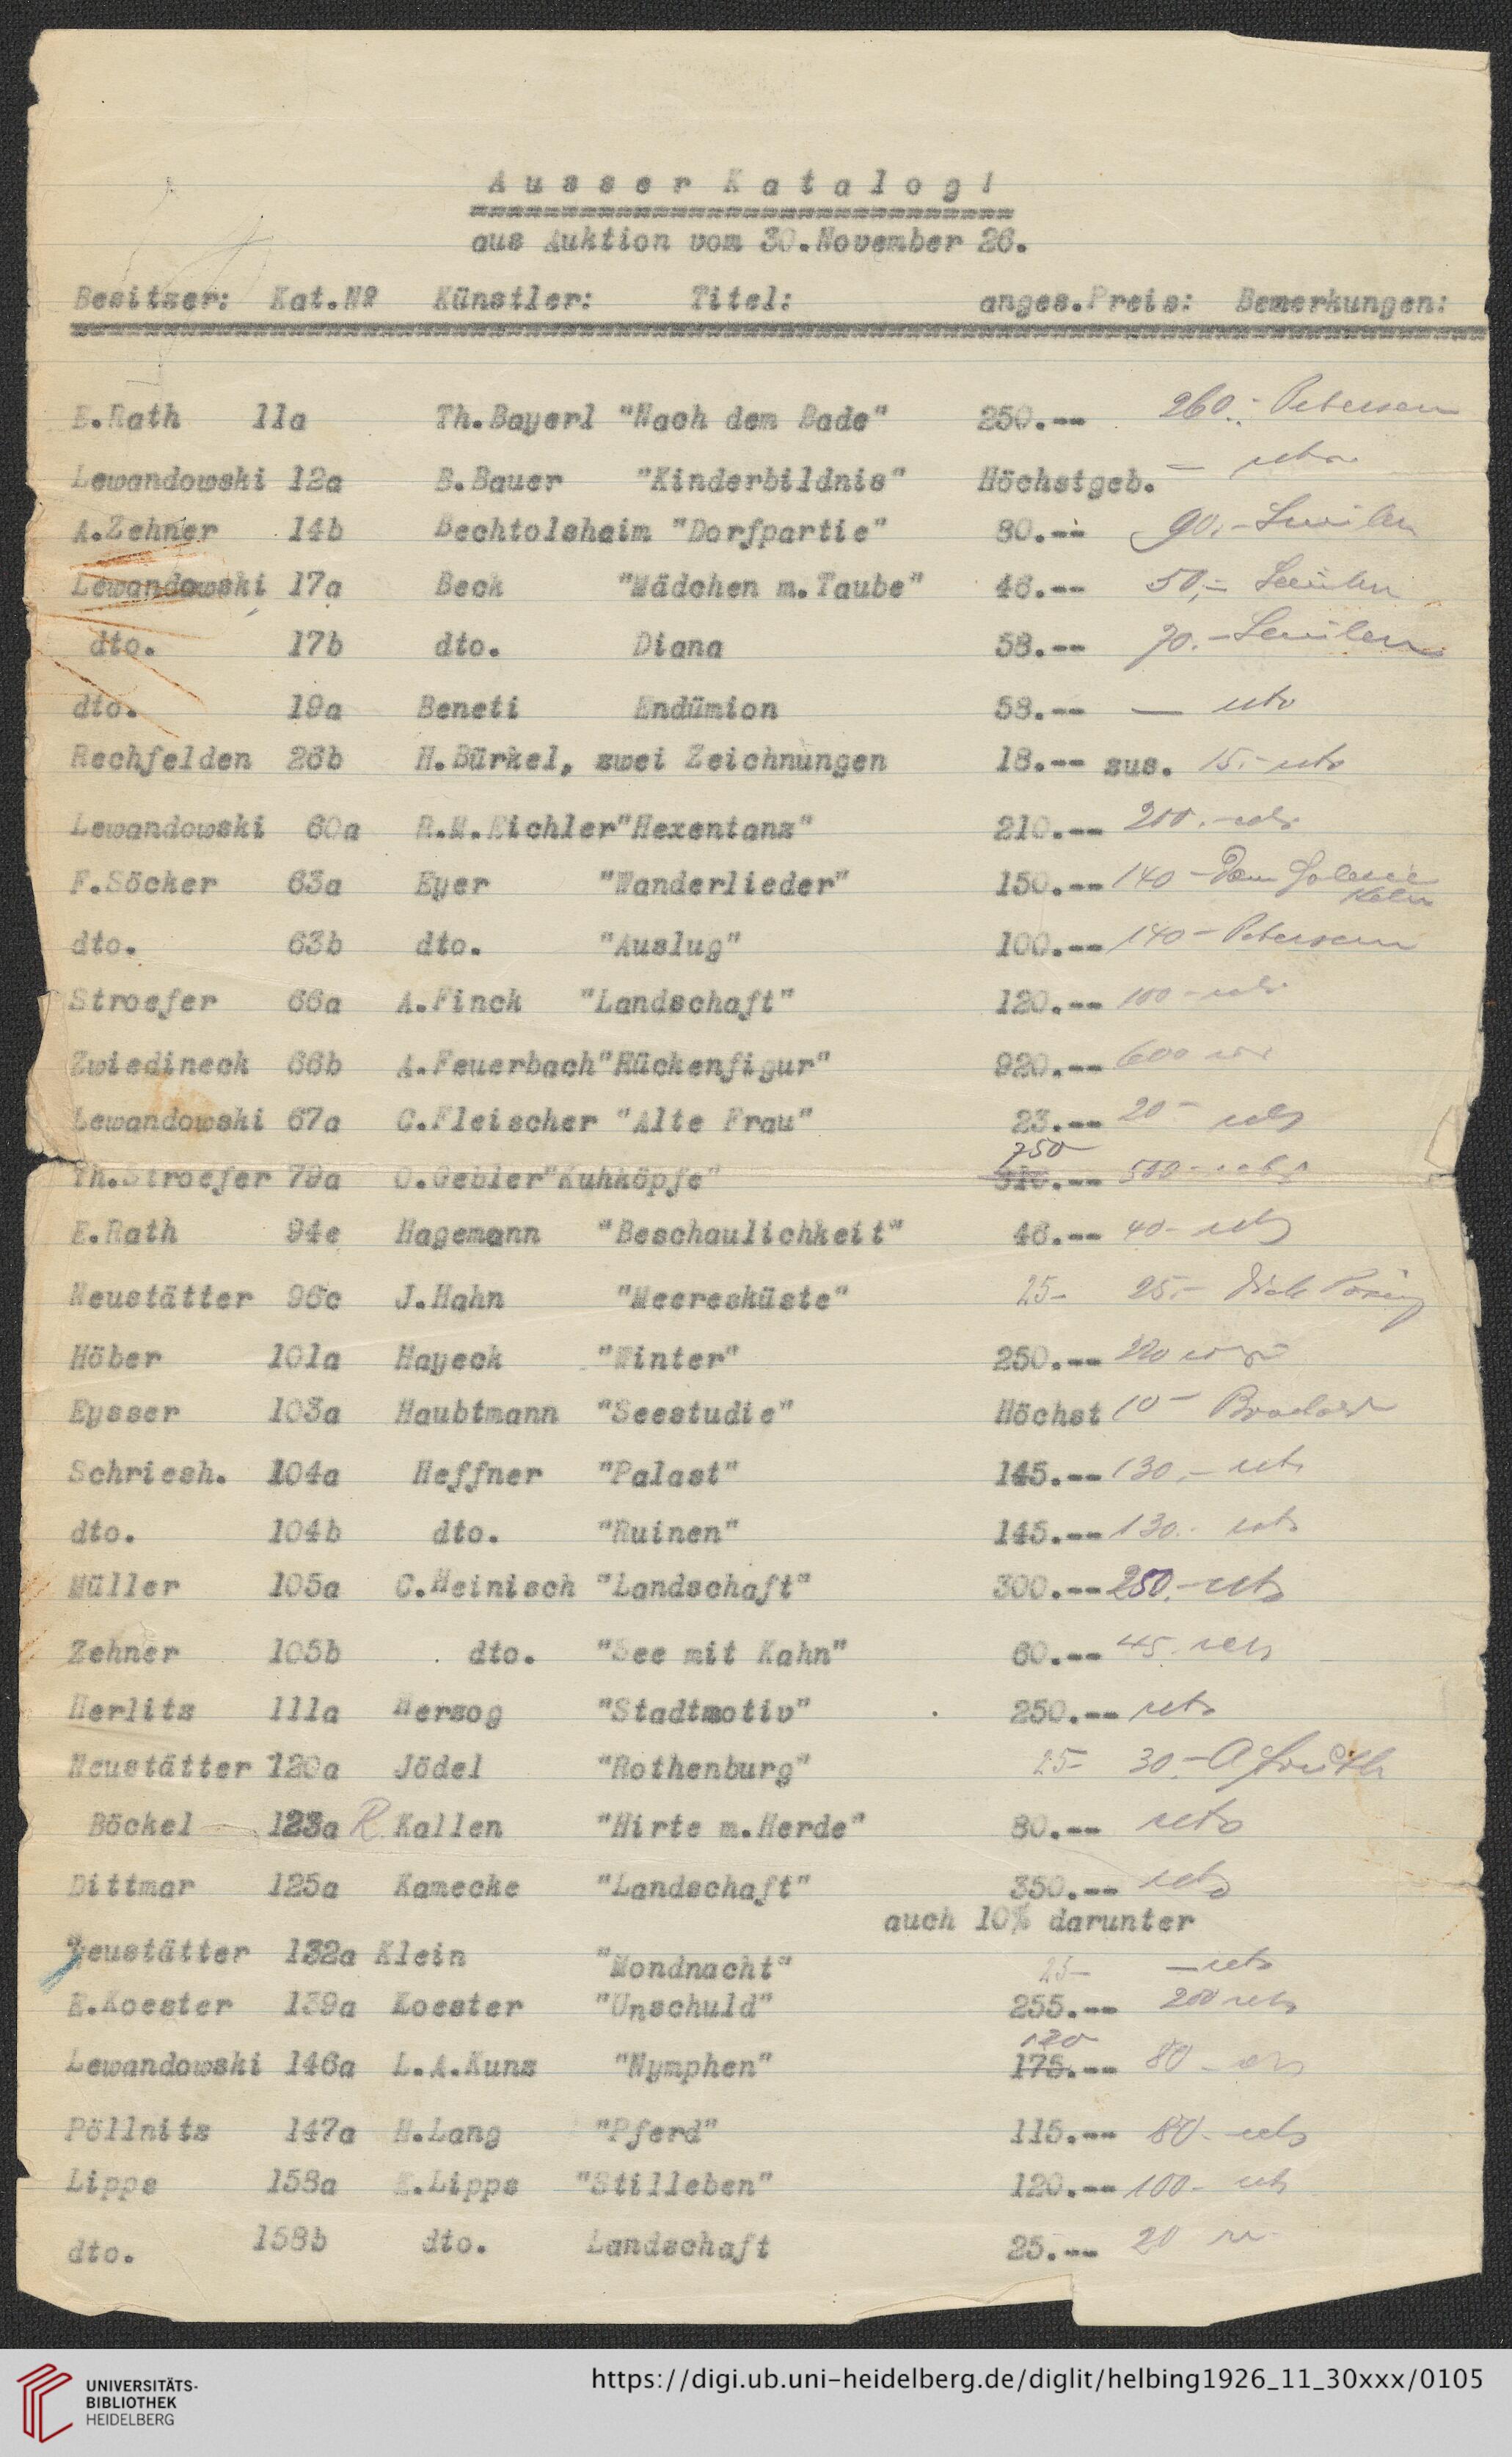 Ausser Katalog!
aus Auktion vom 30.November 26.
Besitzer: Kat.Nº Künstler: Titel: anges.Preis: Bemerkungen:
E.Rath 11a Th.Bayerl "Nach dem Bade" 250.-- 260.- Petersen
Lewandowski 12a B.Bauer "Kinderbildnis" Höchstgeb. -
A.Zehner 14b Bechtolsheim "Dorfpartie" 80.-- 90.-
Lewandowski 17a Beck "Mädchen m.Taube" 46.-- 50.-
dto. 17b dto. Diana 58.-- 70.-
dto. 19a Beneti Endümion 58.-- -
Rechfelden 26b H.Bürkel, zwei Zeichnungen 18.-- zus. 15.-
Lewandowski 60a R.M.Eichler"Hexentanz" 210.-- 200.-
F.Söcker 63a Eyer "Wanderlieder" 150.-- 140 -
dto. 63b dto. "Auslug" 100.-- 140 - Petersen
Stroefer 66a A.Finck "Landschaft" 120.-- 100 -
Zwiedineck 66b A.Feuerbach"Rückenfigur" 920.-- 600
Lewandowski 67a C.Fleischer "Alte Frau" 23.-- 20 -
750
Th.Stroefer 79a O.Gebler"Kuhköpfe" 500 -
E.Rath 94e Hagemann "Beschaulichkeit" 46.-- 40 -
Neustätter 96c J.Hahn "Meeresküste" 25- 25.-
Höber 101a Hayeck "Winter" 250.-- 220
Eysser 103a Haubtmann "Seestudie" Höchst 10 -
Schriesh. 104a Heffner "Palast" 145.-- 130.-
dto. 104b dto. "Ruinen" 145.-- 130.-
Müller 105a C.Heinisch "Landschaft" 300.-- 250.-
Zehner 105b dto. "See mit Kahn" 60.-- 45.
Herlitz 111a Herzog "Stadtmotiv" 250.--
Neustätter 120a Jödel "Rothenburg" 25- 30.-
Böckel 123a R Kallen "Hirte m.Herde" 80.--
Dittmar 125a Kamecke "Landschaft" 350.--
auch 10% darunter
Neustätter 132a Klein "Mondnacht" 25- -
E.Koester 139a Koester "Unschuld" 255.-- 200
120
Lewandowski 146a L.A.Kunz "Nymphen" 175.-- 80 -
Pöllnitz 147a H.Lang "Pferd" 115.-- 80.-
Lipps 158a E.Lipps "Stilleben" 120.-- 100 -
dto. 158b dto. Landschaft 25.-- 20
UNIVERSITÄTS-
BIBLIOTHEK
HEIDELBERG
https://digi.ub.uni-heidelberg.de/diglit/helbing1926_11_30xxx/0105